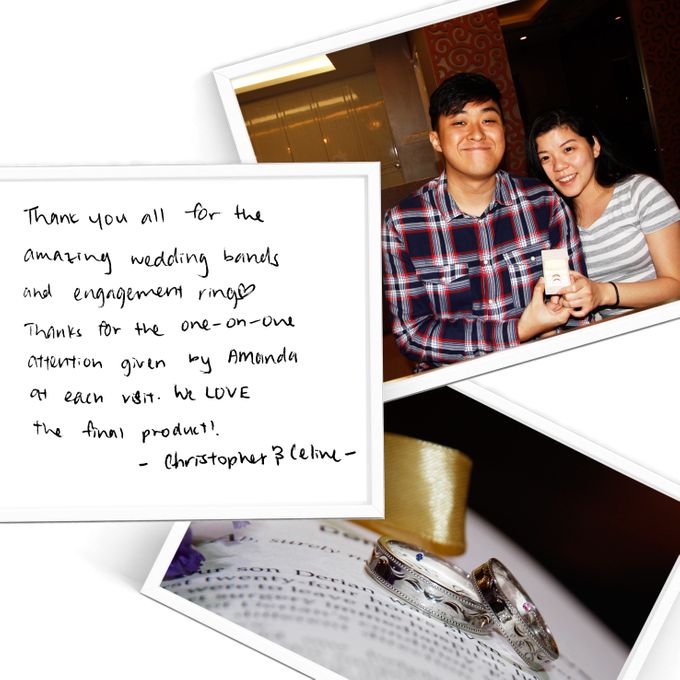 Thank you all for the
amazing wedding bands
and engagement rings♡
Thanks for the one-on-one
attention given by Amanda
at each visit. We LOVE
the final product!
- Christopher & Celine -
surely
our son Derian
twenty-four